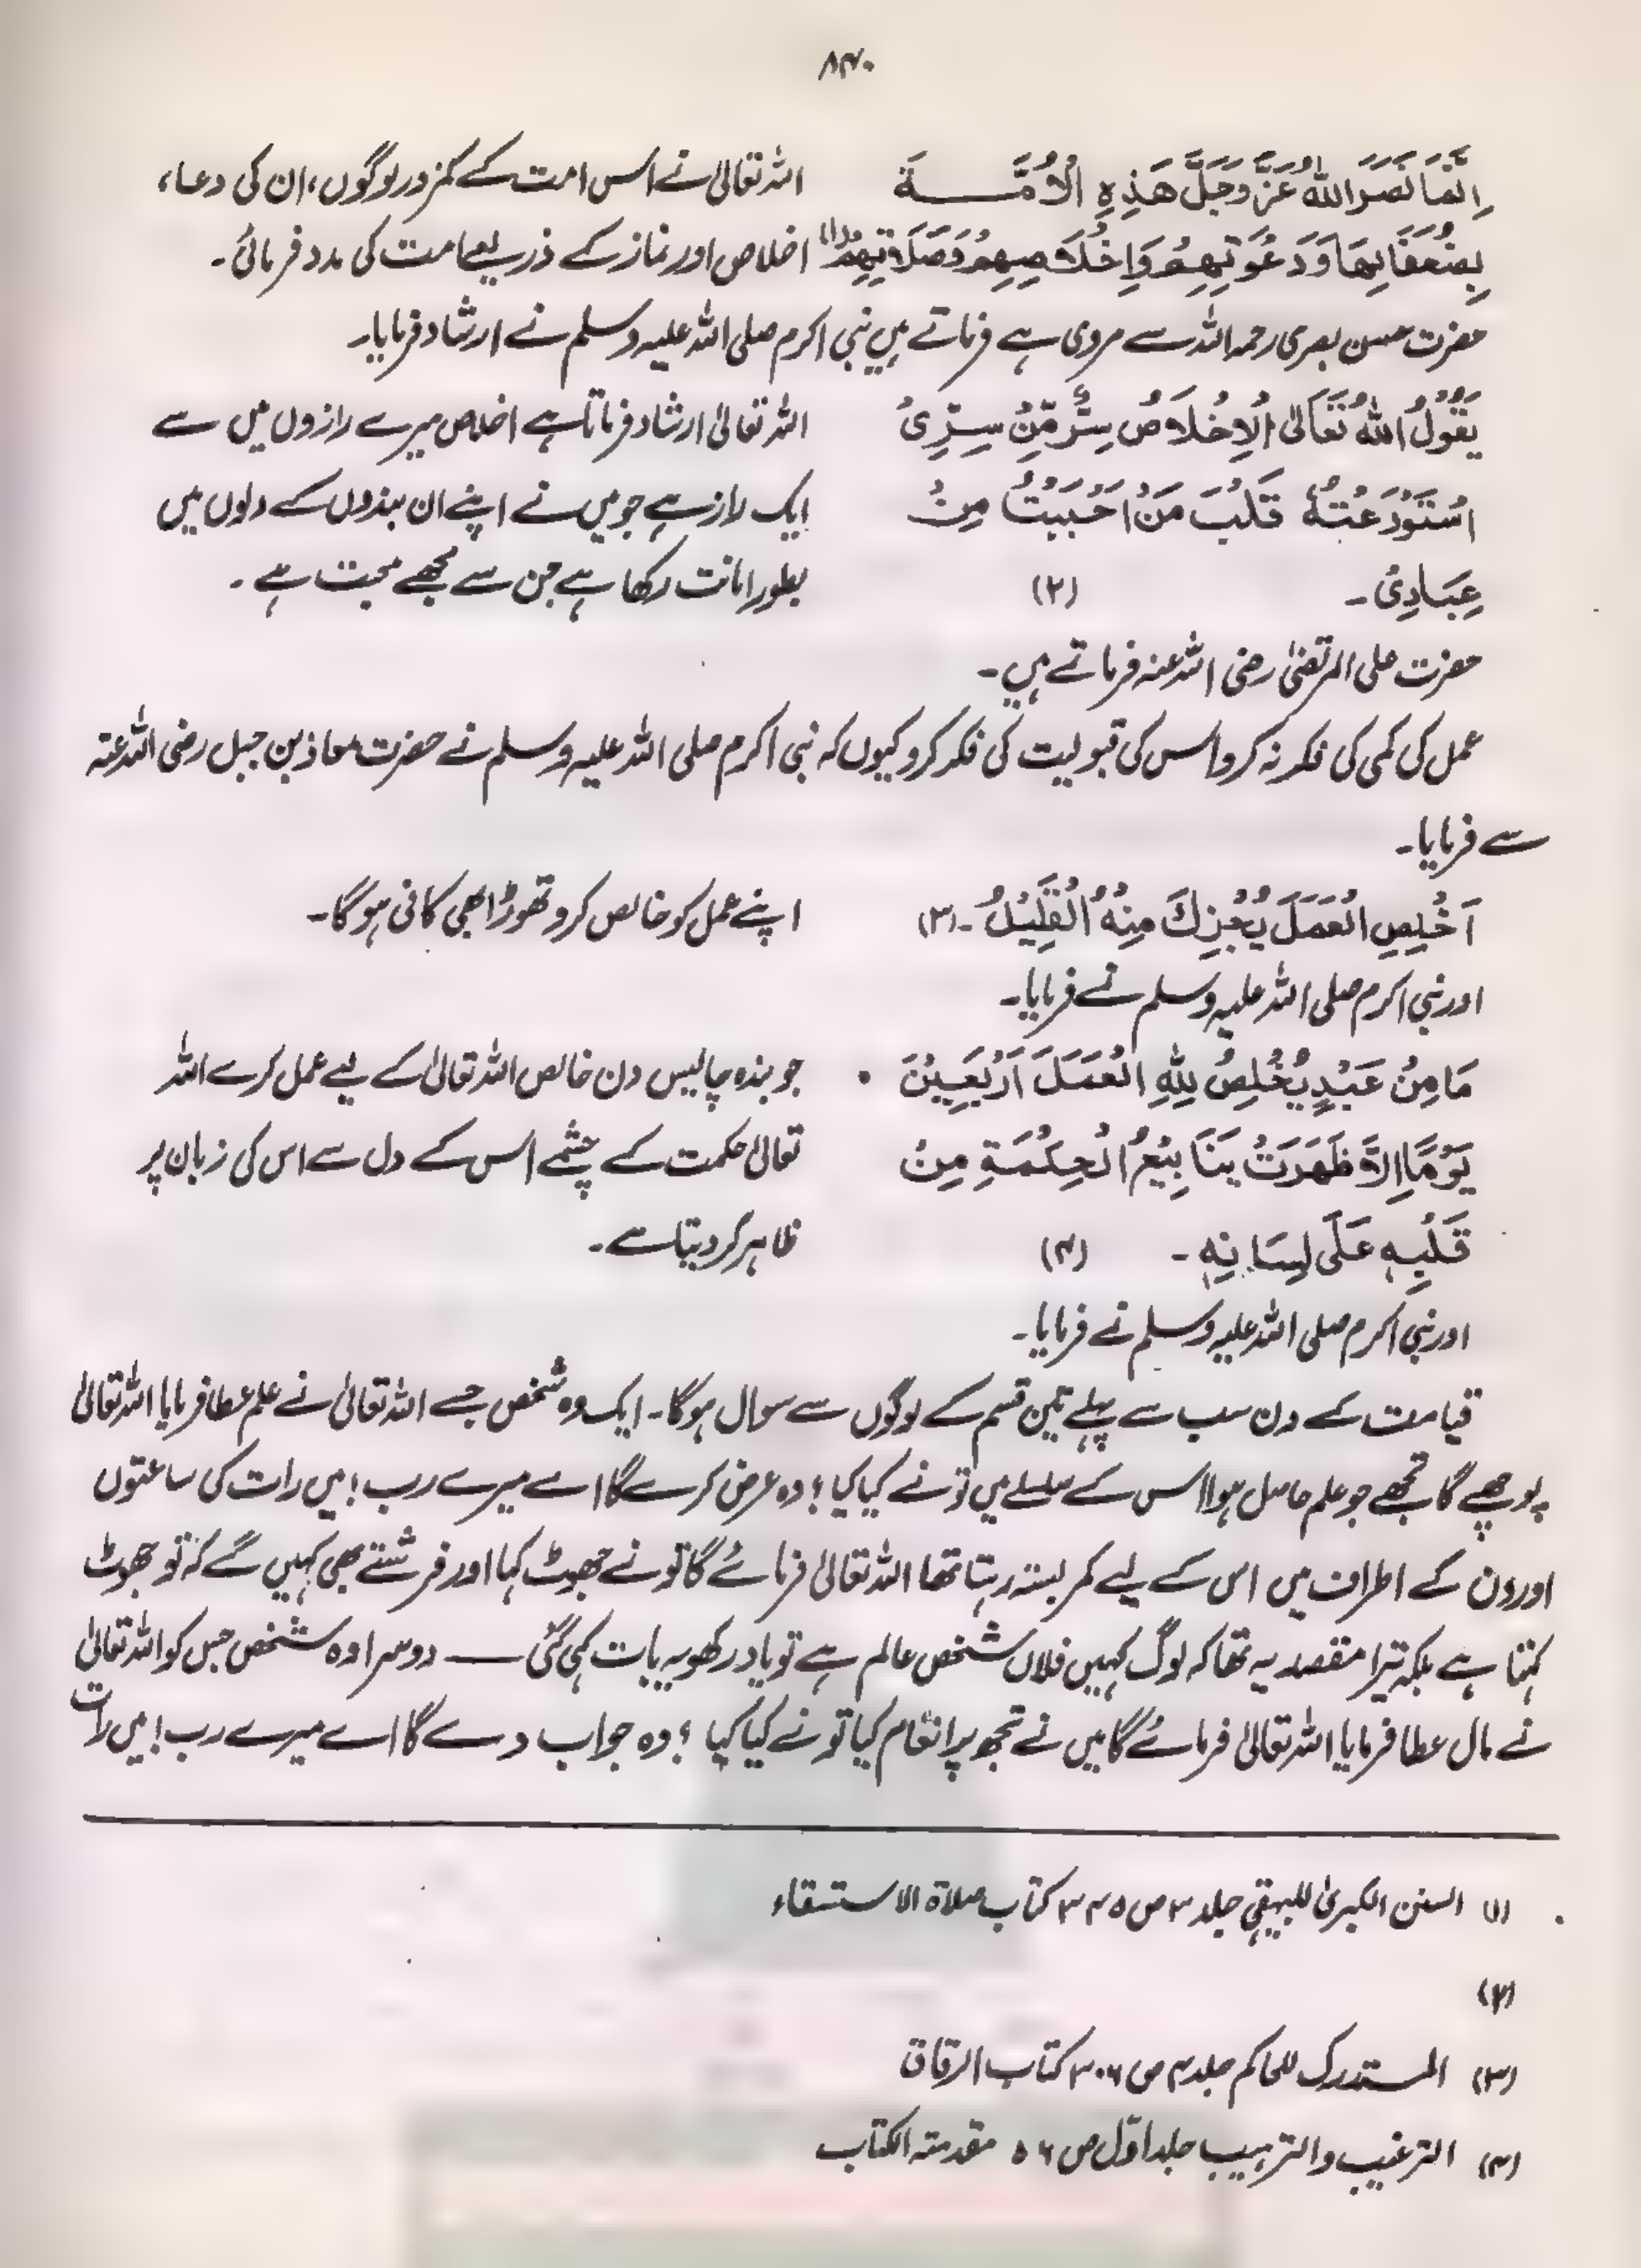 ۸۴۰
اِنَّمَا نَصَرَ اللّٰهُ عَزَّ وَجَلَّ هَذِهِ الْاُمَّـــــةَ اللہ تعالیٰ نے اس امت کے کمزور لوگوں، ان کی دعا،
بِضُعَفَائِهَا وَدَعْوَتِهِمْ وَاِخْلَاصِهِمْ وَصَلَاتِهِمْ (۱) اخلاص اور نماز کے ذریعے امت کی مدد فرمائی۔
حضرت حسن بصری رحمہ اللہ سے مروی ہے فرماتے ہیں نبی اکرم صلی اللہ علیہ وسلم نے ارشاد فرمایا۔
يَقُوْلُ اللّٰهُ تَعَالٰى اَلْاِخْلَاصُ سِرٌّ مِّنْ سِرِّىْ اللہ تعالیٰ ارشاد فرماتا ہے اخلاص میرے رازوں میں سے
اسْتَوْدَعْتُهُ قَلْبَ مَنْ اَحْبَبْتُ مِنْ ایک راز ہے جو میں نے اپنے ان بندوں کے دلوں میں
عِبَادِىْ۔ (۲) بطور امانت رکھا ہے جن سے مجھے محبت ہے۔
حضرت علی المرتضیٰ رضی اللہ عنہ فرماتے ہیں۔
عمل کی کمی کی فکر نہ کرو اس کی قبولیت کی فکر کرو کیوں کہ نبی اکرم صلی اللہ علیہ وسلم نے حضرت معاذ بن جبل رضی اللہ عنہ
سے فرمایا۔
اَخْلِصِ الْعَمَلَ يُجْزِكَ مِنْهُ الْقَلِيْلُ۔ (۳) اپنے عمل کو خالص کرو تھوڑا بھی کافی ہوگا۔
اور نبی اکرم صلی اللہ علیہ وسلم نے فرمایا۔
مَا مِنْ عَبْدٍ يُخْلِصُ لِلّٰهِ الْعَمَلَ اَرْبَعِيْنَ جو بندہ چالیس دن خالص اللہ تعالیٰ کے لیے عمل کرے اللہ
يَوْمًا اِلَّا ظَهَرَتْ يَنَابِيْعُ الْحِكْمَةِ مِنْ تعالیٰ حکمت کے چشمے اس کے دل سے اس کی زبان پر
قَلْبِهٖ عَلٰى لِسَانِهٖ۔ (۴) ظاہر کر دیتا ہے۔
اور نبی اکرم صلی اللہ علیہ وسلم نے فرمایا۔
قیامت کے دن سب سے پہلے تین قسم کے لوگوں سے سوال ہوگا۔ ایک وہ شخص جسے اللہ تعالیٰ نے علم عطا فرمایا اللہ تعالیٰ
پوچھے گا تجھے جو علم حاصل ہوا اس کے سلسلے میں تو نے کیا کیا؟ وہ عرض کرے گا اے میرے رب! میں رات کی ساعتوں
اور دن کے اطراف میں اس کے لیے کمر بستہ رہتا تھا اللہ تعالیٰ فرمائے گا تو نے جھوٹ کہا اور فرشتے بھی کہیں گے کہ تو جھوٹ
کہتا ہے بلکہ تیرا مقصد یہ تھا کہ لوگ کہیں فلاں شخص عالم ہے تو یاد رکھو یہ بات کہی گئی ــــــ دوسرا وہ شخص جس کو اللہ تعالیٰ
نے مال عطا فرمایا اللہ تعالیٰ فرمائے گا میں نے تجھ پر انعام کیا تو نے کیا کیا؟ وہ جواب دے گا اے میرے رب! میں رات
(۱) السنن الکبریٰ للبیہقی جلد ۳ ص ۳۴۵ کتاب صلاۃ الاستسقاء
(۲)
(۳) المستدرک للحاکم جلد ۴ ص ۳۰۶ کتاب الرقاق
(۴) الترغیب والترہیب جلد اوّل ص ۵۶ مقدمۃ الکتاب